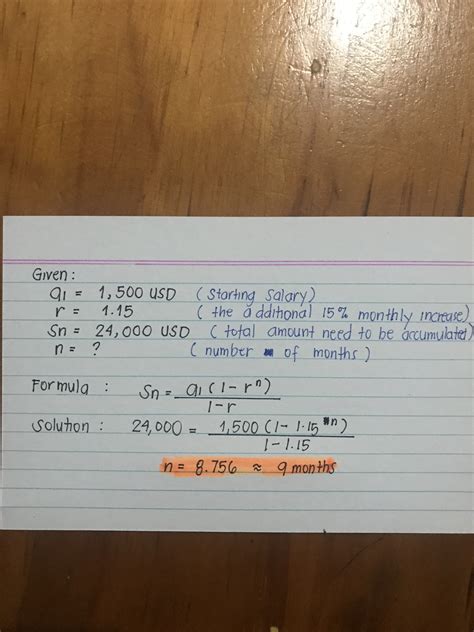 Given :
a1 = 1,500 USD ( Starting Salary)
r = 1.15 ( the additional 15% monthly increase)
Sn = 24,000 USD ( total amount need to be accumulated)
n = ? ( number of months )
Formula : Sn = a1 ( 1 - r^n ) / 1 - r
Solution : 24,000 = 1,500 ( 1 - 1.15^n ) / 1 - 1.15
n = 8.756 ≈ 9 months